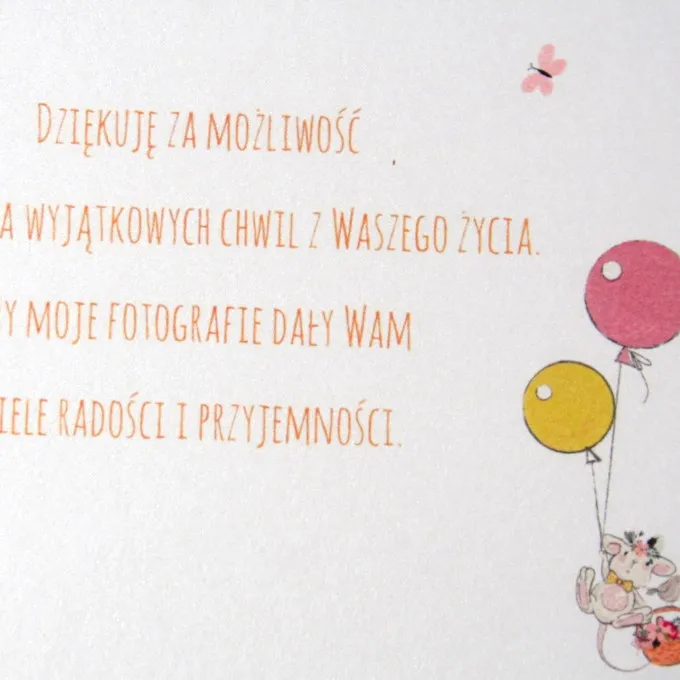 Dziękuję za możliwość
a wyjątkowych chwil z Waszego życia.
y moje fotografie dały Wam
iele radości i przyjemności.